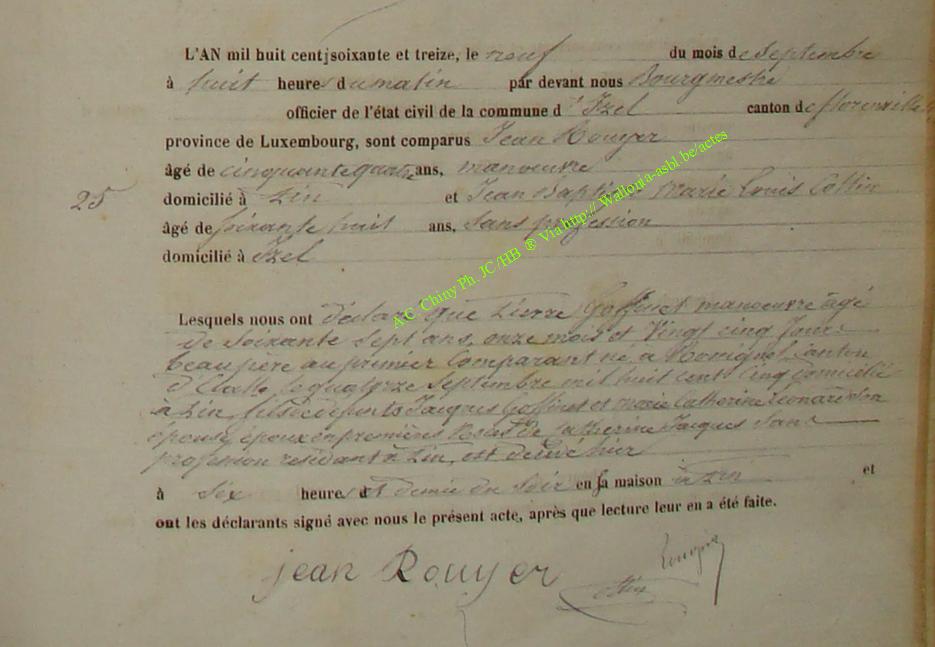 L'AN mil huit cent soixante et treize, le neuf du mois de Septembre
à huit heures du matin par devant nous Bourgmestre
officier de l'état civil de la commune d' Izel canton de florenville
province de Luxembourg, sont comparus Jean Rouyer
âgé de cinquante quatre ans, manoeuvre
25
domicilié à Pin et Jean Baptiste Marie Louis Collin
âgé de soixante huit ans, Sans profession
domicilié à Izel
Lesquels nous ont déclaré que Pierre Goffinet manoeuvre agé
de Soixante Sept ans, onze mois et Vingt cinq Jours
beau père au premier Comparant né, à Canton
d' le quatorze Septembre mil huit cent Cinq domicilié
à Pin, fils de défunts Jacques Goffinet et marie Catherine Leonard Son
épouse, époux en premières Noces de Catherine Jacques Sans
profession residant à Pin, est décédé hier
à Six heures et demie du Soir en sa maison à Pin et
ont les déclarants signé avec nous le présent acte, après que lecture leur en a été faite.
jean Rouyer
A.C. Chiny Ph. JC /HB ® Via http:// Wallonia-asbl.be/actes